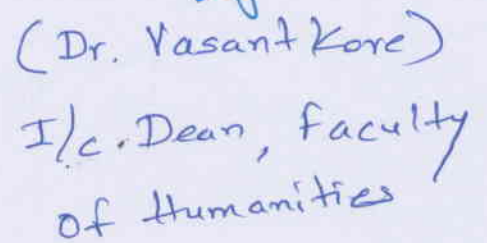 (Dr. Vasant Kore)
I/c. Dean, Faculty
of Humanities